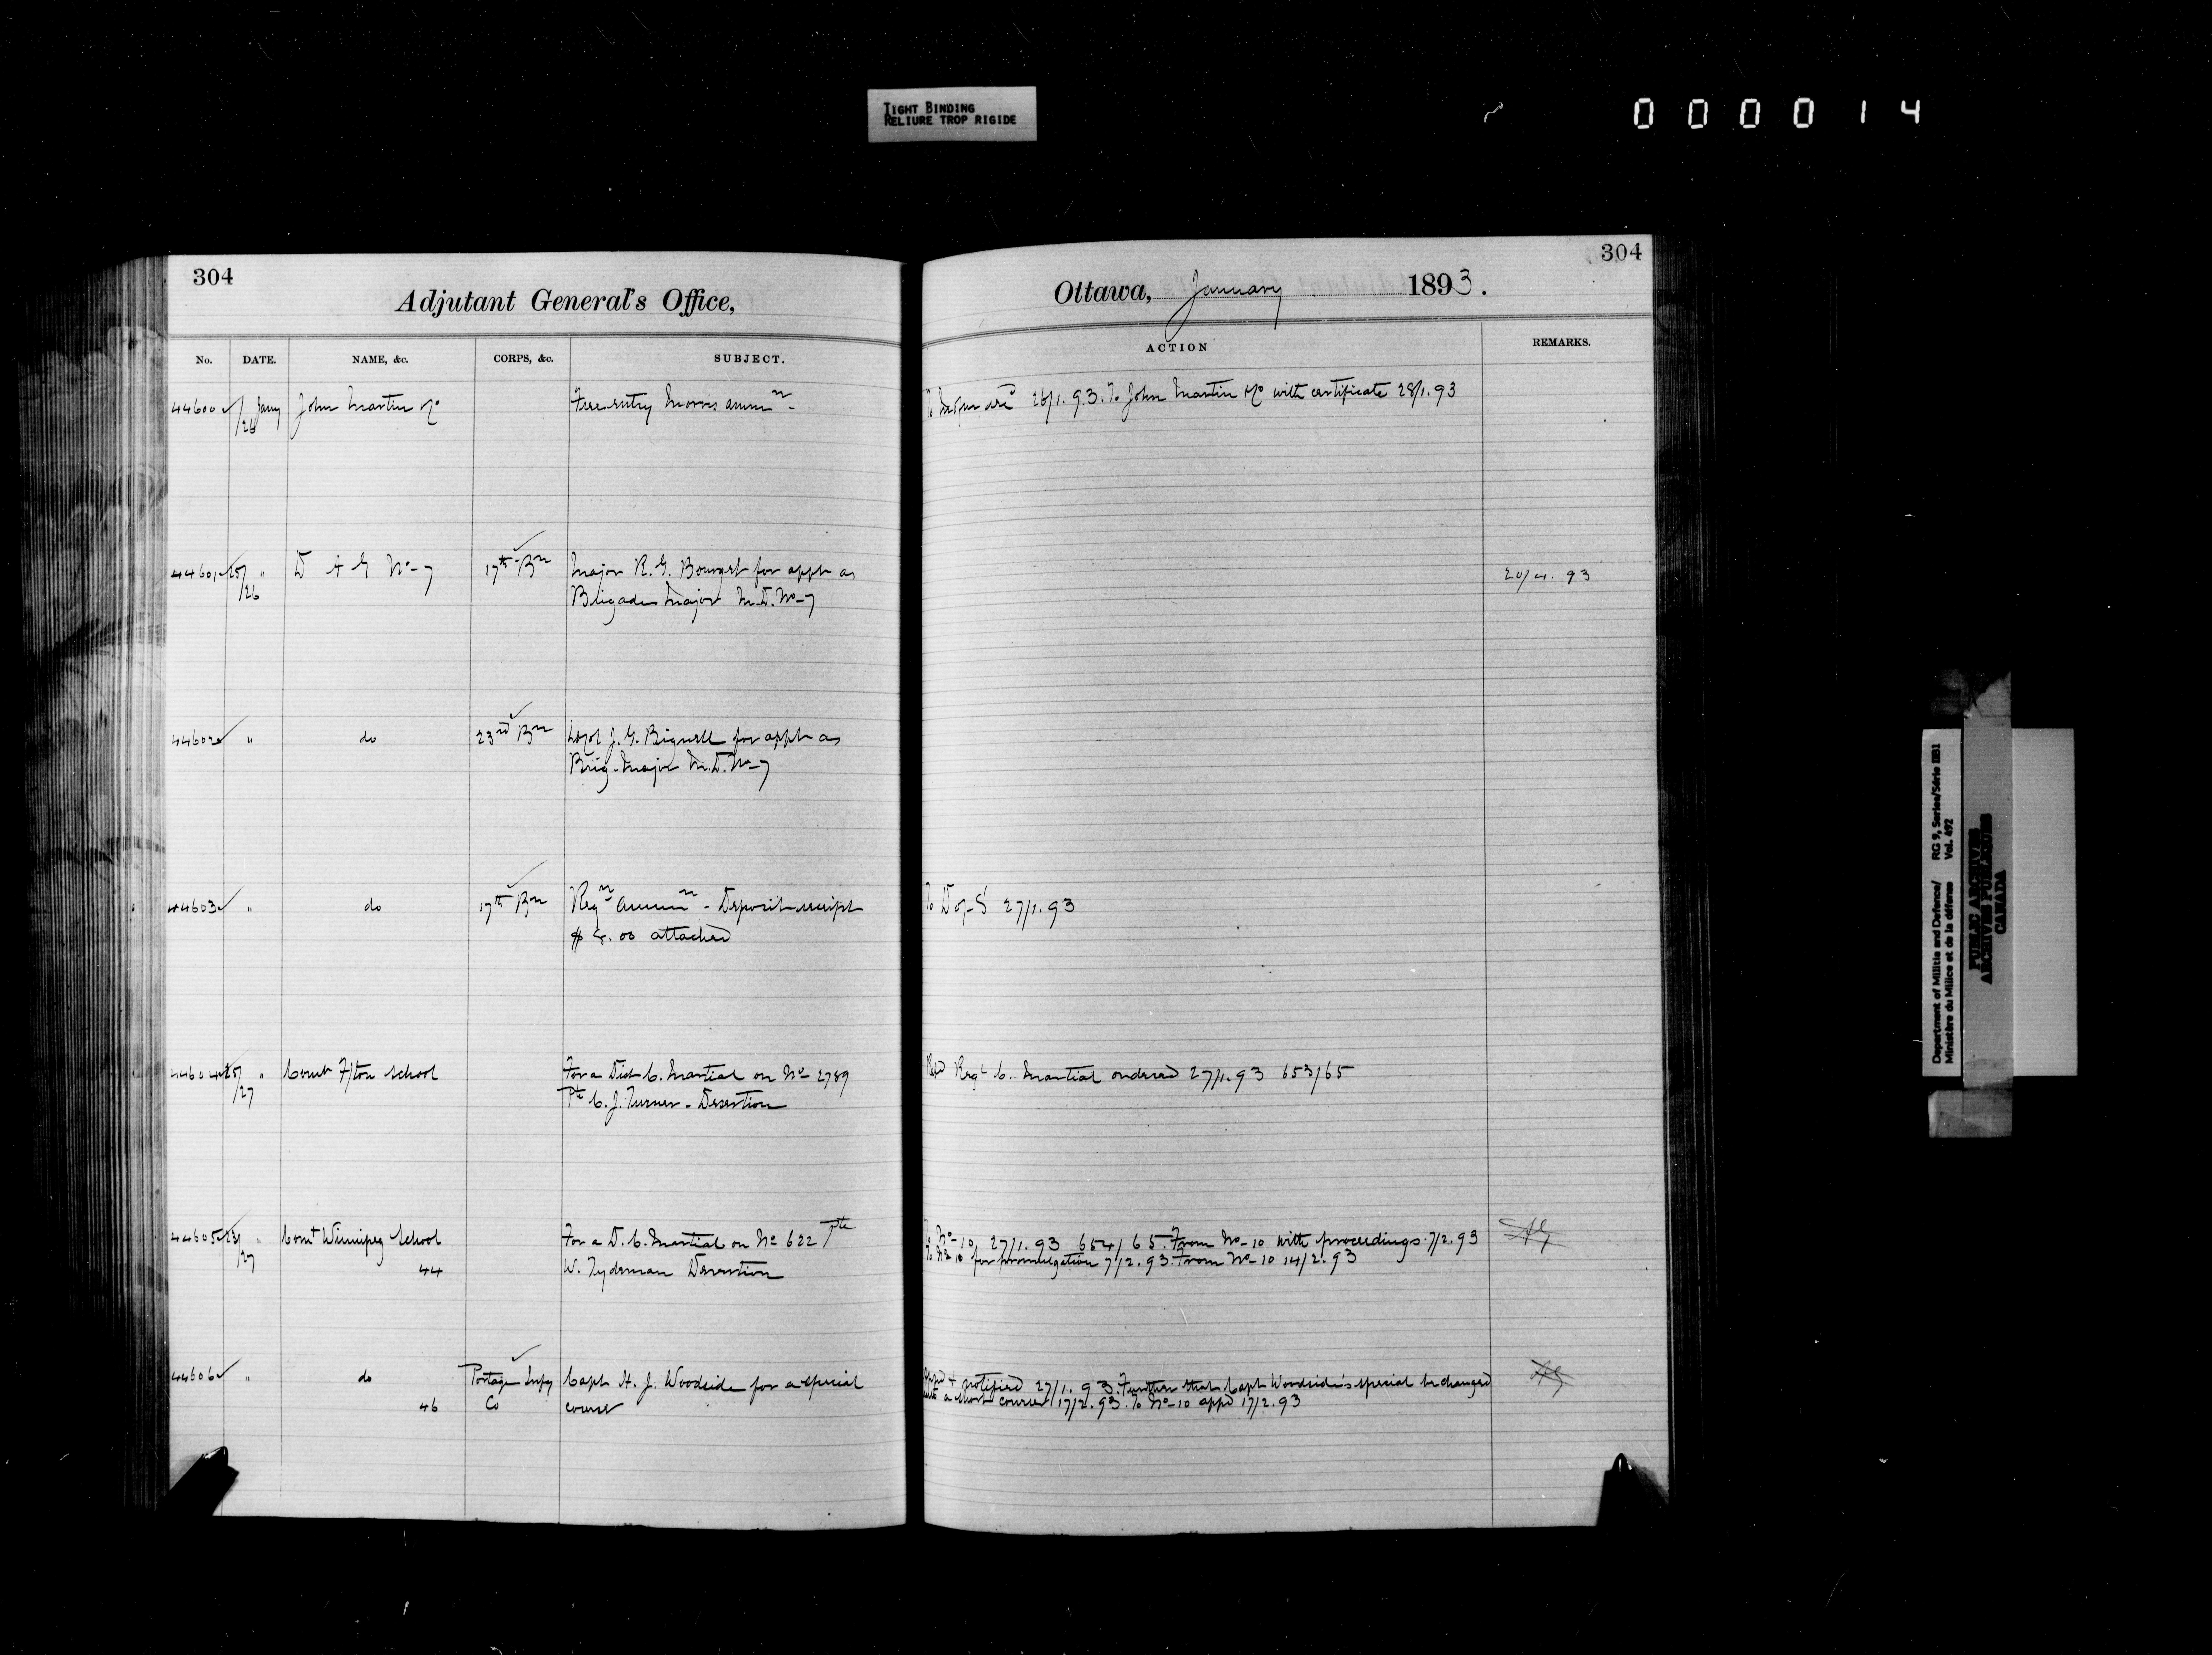 TIGHT BINDING
RELIURE TROP RIGIDE
000014
304
Adjutant General's Office,
No. DATE. NAME, &c. CORPS, &c. SUBJECT.
44600 Jany John Martin &Co Free entry Morris ammn.
/26
44601 25/ " D A G No-7 17th Bn Major R. G. for appt as
/26 Brigade Major M.D. No-7
44602 " do 23rd Bn J. G. Bignell for appt as
Brig-Major M.D. No-7
44603 " do 17th Bn Reqn ammn - Deposit receipt
$ attached
44604 25/ " Comt F/ton School For a Dist C. Martial on No- 2789
/27 Pte C. J. Turner - Desertion
44605 23/ " Comt Winnipeg School For a D. C. Martial on No 622 Pte
/27 44 W. Tydeman Desertion
44606 " do Portage Infy Capt H. J. Woodside for a special
46 Co course
304
Ottawa, January 1893.
ACTION REMARKS.
26/1.93. To John Martin &Co with certificate 28/1.93
20/4. 93
To D of S 27/1.93
Regt C. Martial ordered 27/1.93 653/65
To No-10 27/1.93 654/65. From No-10 with proceedings 7/2.93 AG
To No 10 for promulgation 7/2.93. From No-10 14/2.93
& notified 27/1.93. Further that Capt Woodside's special be changed AG
a short course 17/2.93. To No-10 appd 17/2.93
Department of Militia and Defence/ RG 9, Series/Série IIB1
Ministère du Milice et de la défense Vol. 492
PUBLIC ARCHIVES
ARCHIVES PUBLIQUES
CANADA